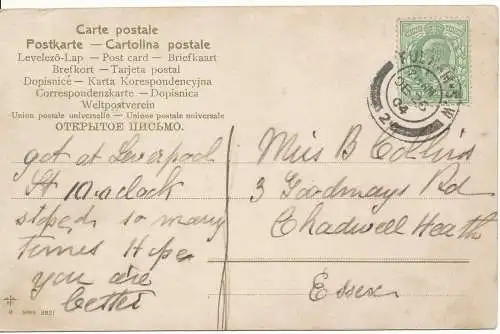 Carte postale
Postkarte — Cartolina postale
Levelező-Lap — Post card — Briefkaart
Brefkort — Tarjeta postal
Dopisnice — Karta Korespondencyjna
Correspondenzkarte — Dopisnica
Weltpostverein
Union postale universelle — Unione postale universale
ОТКРЫТОЕ ПИСЬМО.
got at Leverpool
St 10 o clock
stoped so many
times Hope
you are
better
Miss B Collins
3 Goodmays Rd
Chadwell Heath
Essex
04